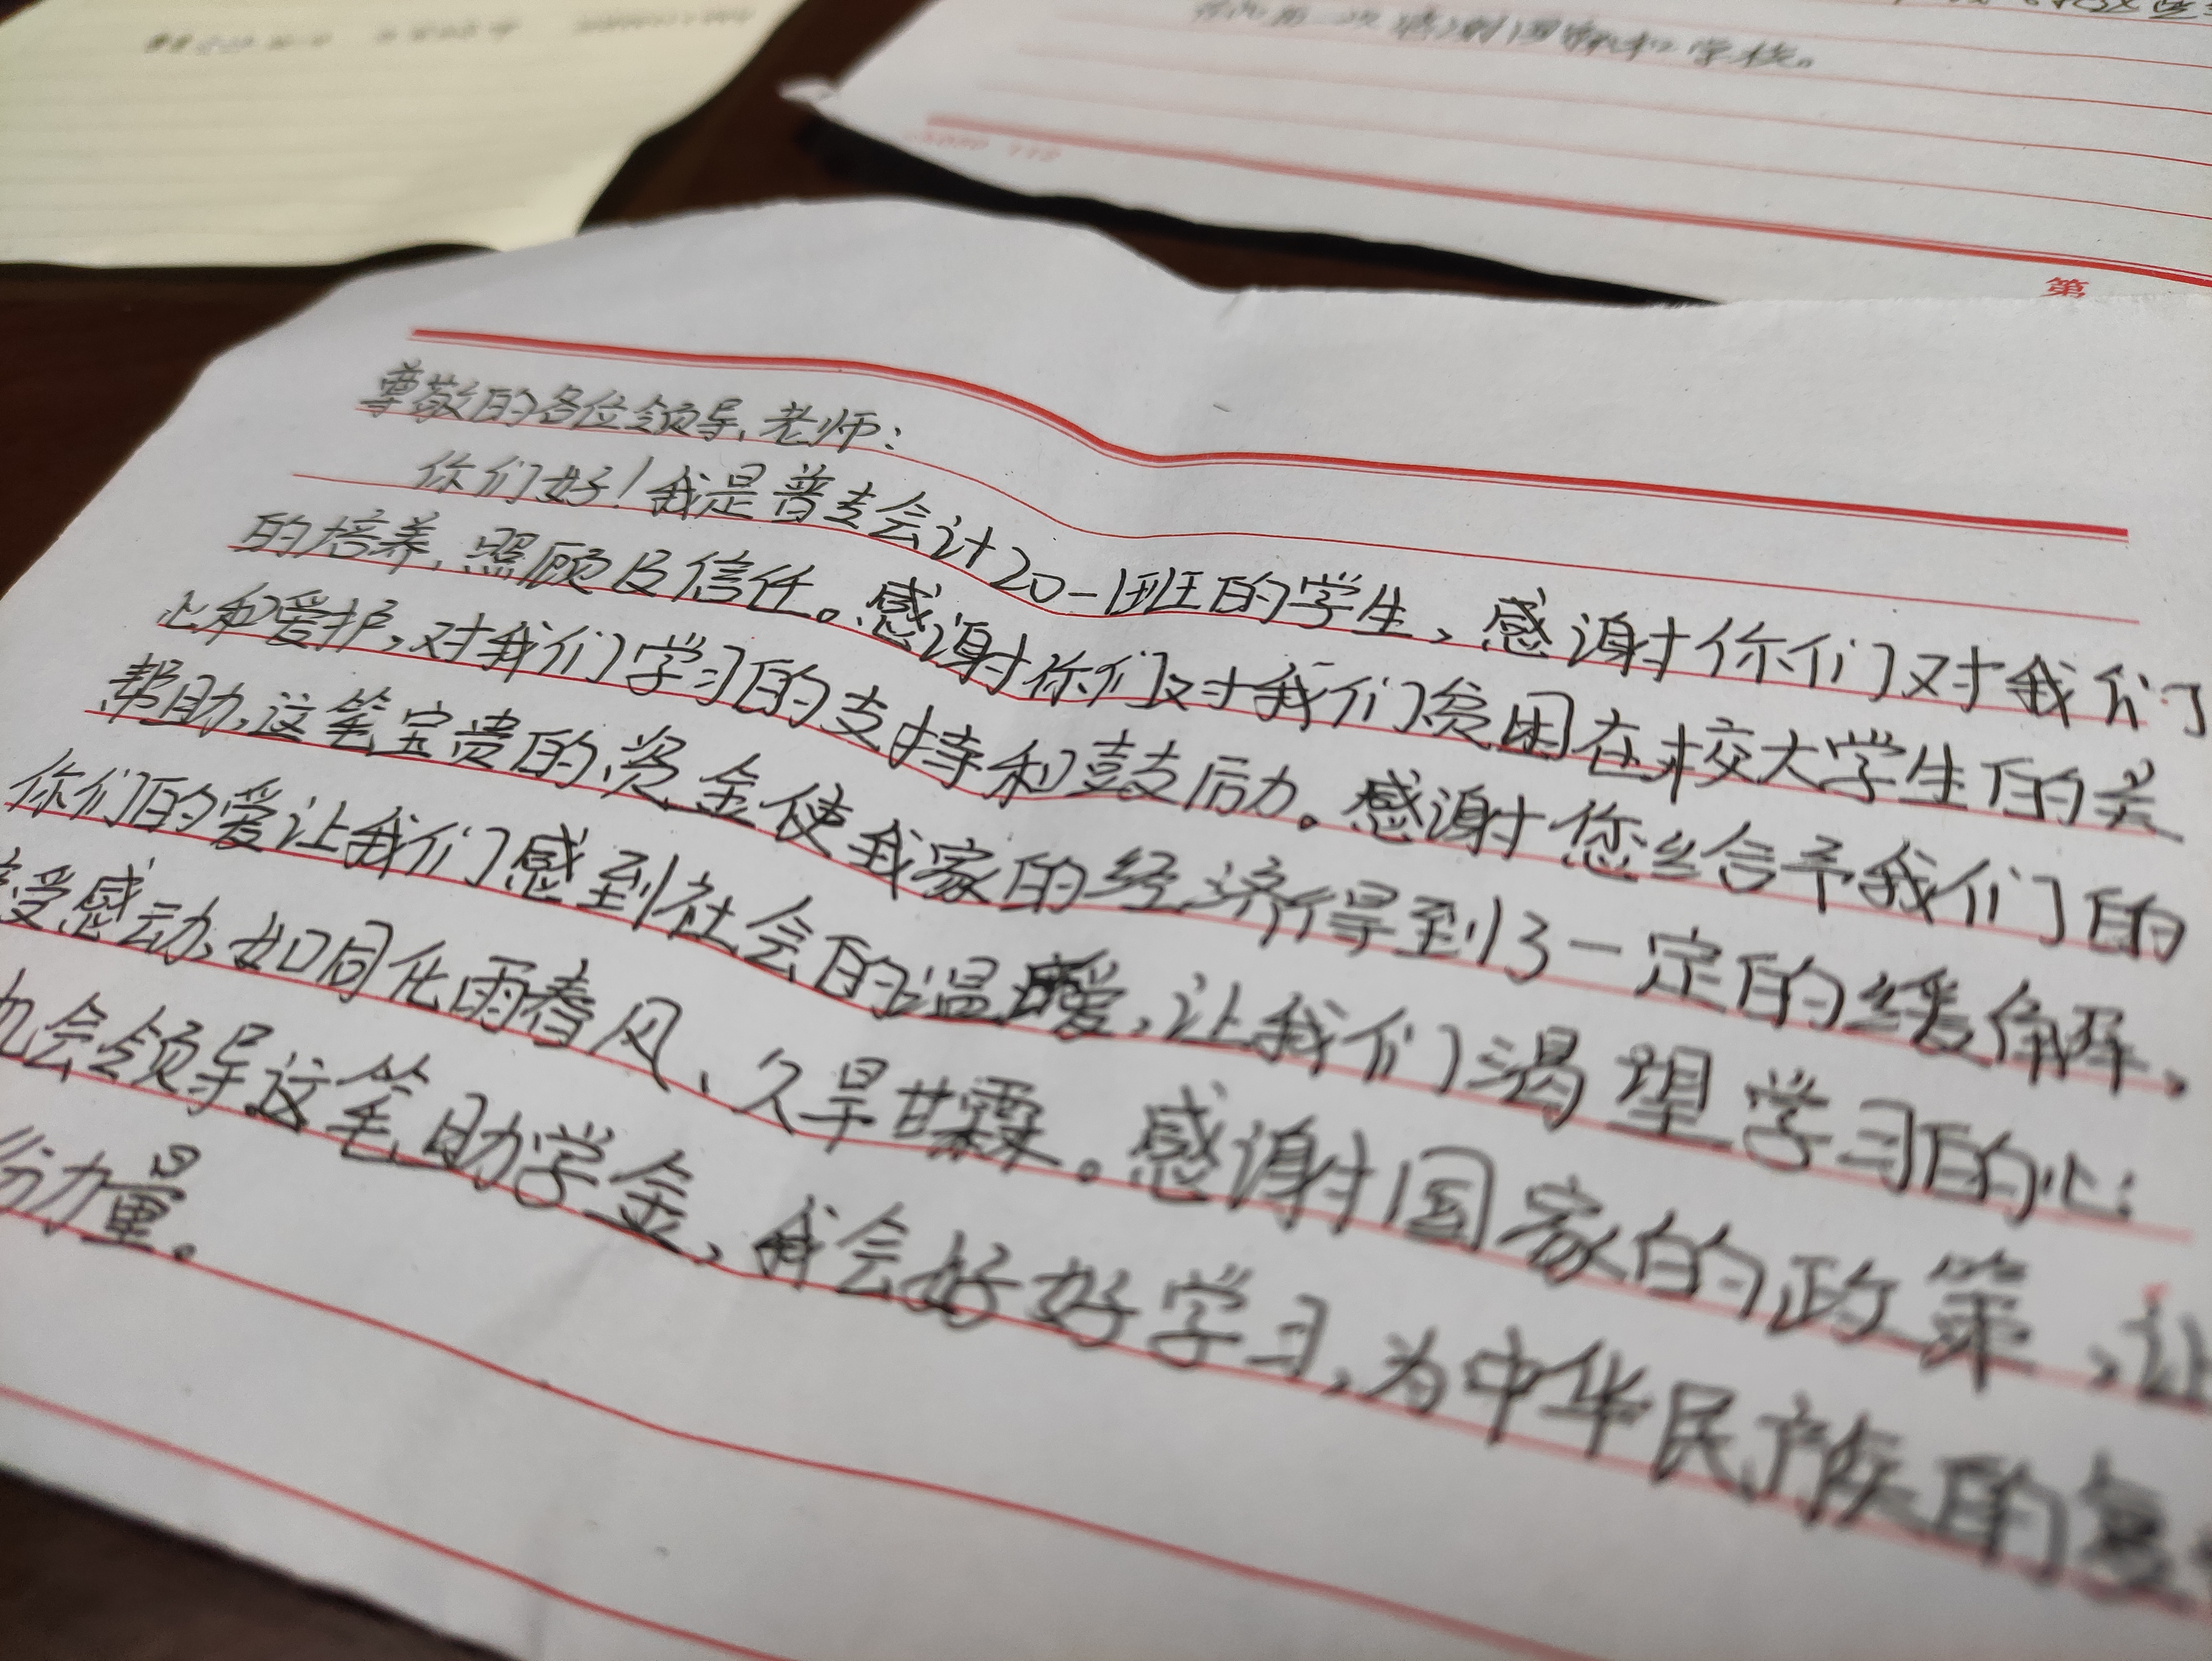 感谢国家和学校。
第
尊敬的各位领导、老师：
你们好！我是普专会计20-1班的学生，感谢你们对我们
的培养、照顾及信任。感谢你们对我们贫困在校大学生的关
心和爱护，对我们学习的支持和鼓励。感谢您给予我们的
帮助，这笔宝贵的资金使我家的经济得到了一定的缓解。
你们的爱让我们感到社会的温暖，让我们渴望学习的心
受感动，如同化雨春风、久旱甘霖。感谢国家的政策，让
机会领导这笔助学金，我会好好学习，为中华民族的复
份力量。